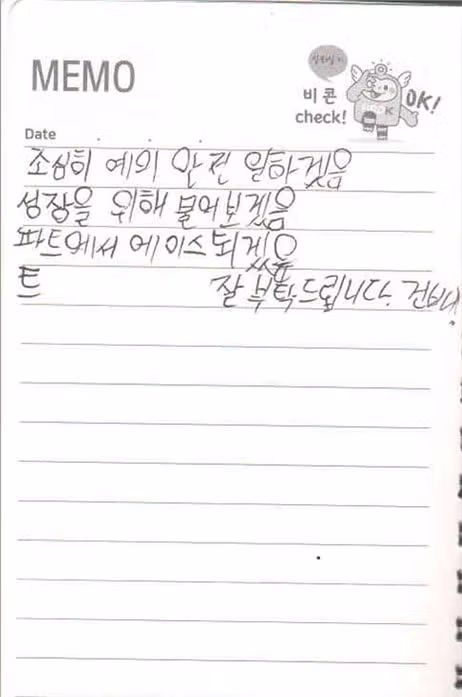 MEMO
비 콘
check!
OK!
Date
조심히 예의 안전 일하겠음
성장을 위해 물어보겠음
파트에서 에이스 되겠음
트 잘 부탁드립니다.